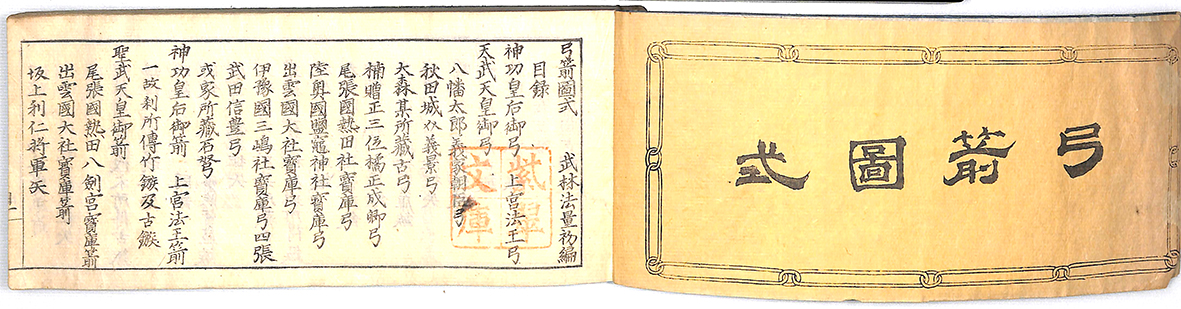 弓箭圖式
弓箭圖式 武林法量初編
目録
神功皇后御弓 上宮法王弓
天武天皇御弓
八幡太郎義家朝臣弓
秋田城介義景弓
大森某所藏古弓
楠贈正三位橘正成卿弓
尾張國熱田社寶庫弓
陸奥國鹽竈神社寶庫弓
出雲國大社寶庫弓
伊豫國三嶋社寶庫弓四張
武田信豊弓
或家所藏石弩
神功皇后御箭 上宮法王箭
一故刹所傳竹鏃及古鏃
聖武天皇御箭
尾張國熱田八劔宮寶庫箭
出雲國大社寶庫箭
坂上利仁将軍矢
紫翠文庫